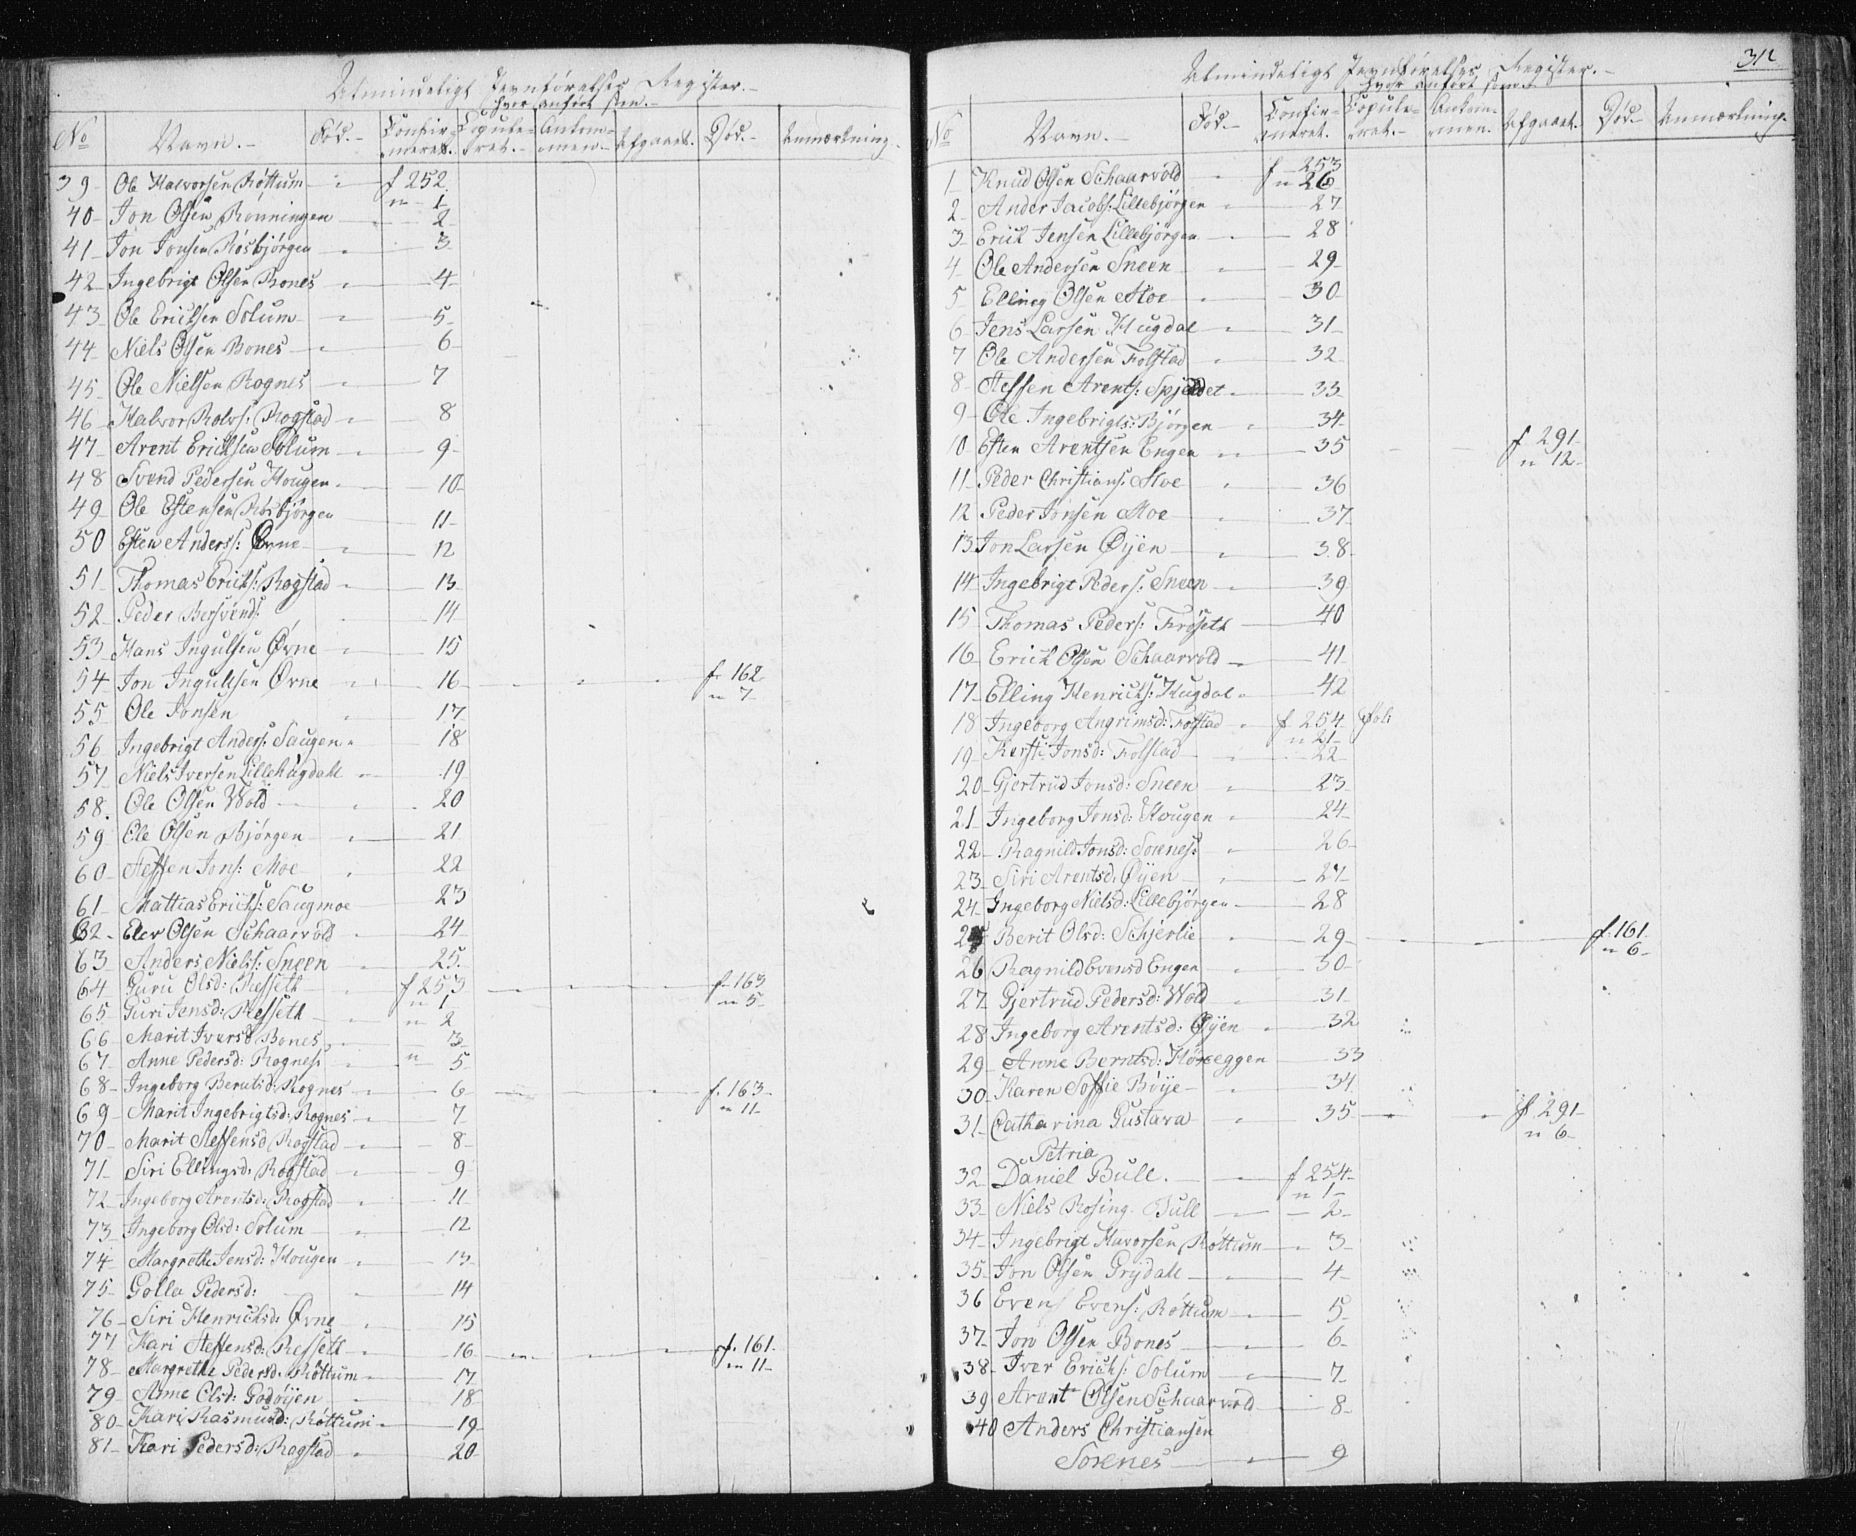 Almindeligt Jevnførelses Register.
Hvor anført som.
No Navn. Fød. Confirmeret. Copuleret. Ankommen. Afgaaet. Død. Anmærkning.
39 Ole Halvorsen Røttum f 252. n 1
40 Jon Olsen Rønningen 2
41 Jon Jonsen Røsbjørgen 3
42 Ingebrigt Olsen Bones 4
43 Ole Ericksen Solum 5
44 Niels Olsen Bones 6
45 Ole Nielsen Rognes 7
46 Halvor Rolvs: Rogstad 8
47 Arent Ericksen Solum 9
48 Svend Pedersen Hougen 10
49 Ole Estensen Røsbjørgen 11
50 Esten Anders: Øvne 12
51 Thomas Ericks: Rogstad 13
52 Peder Bersvends: 14
53 Hans Ingulsen Øvne 15
54 Jon Ingulsen Øvne 16 f 162 n 7
55 Ole Jonsen 17
56 Ingebrigt Anders: Saugen 18
57 Niels Iversen Lillehugdahl 19
58 Ole Olsen Wold 20
59 Ole Olsen Bjørgen 21
60 Steffen Jons: Moe 22
61 Mattias Ericks: Saugmoe 23
62 Elev Olsen Schaarvold 24
63 Anders Niels: Sneen 25
64 Guru Olsd: Resseth f 253 n 1 f 163 n 5
65 Guri Jensd: Ressett n 2
66 Marit Iversd Bones 3
67 Anne Pedersd: Rognes n 5
68 Ingeborg Berntsd: Rognes 6 f. 163 n 11
69 Marit Ingebrigtsd: Rognes 7
70 Marit Steffensd Rogstad 8
71 Siri Ellingsd: Rogstad 9
72 Ingeborg Arentsd: Rogstad 11
73 Ingeborg Olsd: Solum 12
74 Margrethe Jensd: Hougen 13
75 Golla Pedersd: 14
76 Siri Henricksd: Øvne 15
77 Kari Steffensd: Ressett 16 f. 161 n 11
78 Margrethe Pedersd: Røttum 17
79 Anne Olsd: Godøijen 18
80 Kari Rasmusd: Røttum 19
81 Kari Pedersd: Rogstad 20
312
Almindeligt Jevnførelses Register.
Hvor anført som
No Navn. Fød. Confirmeret. Copuleret. Ankommen. Afgaaet. Død. Anmærkning.
1 Knud Olsen Schaarvold f 253 n 26
2 Ander Jacobs: Lillebjørgen 27
3 Erick Jensen Lillebjørgen 28
4 Ole Andersen Sneen 29
5 Elling Olsen Moe 30
6 Jens Larsen Hugdal 31
7 Ole Andersen Folstad 32
8 Steffen Arents: Spjeldet 33
9 Ole Ingebrigts: Bjørgen 34
10 Esten Arentsen Engen 35 f 291 n 12
11 Peder Christians: Moe 36
12 Peder Jonsen Moe 37
13 Jon Larsen Øijen 38
14 Ingebrigt Peders: Sneen 39
15 Thomas Peders: Frøseth 40
16 Erick Olsen Schaarvold 41
17 Elling Henricks: Hugdal 42
18 Ingeborg Angrimsd: Folstad f 254 n 21
19 Kersti Jonsd: Folstad 22
20 Gjertrud Jonsd: Sneen 23
21 Ingeborg Jonsd: Hougen 24
22 Ragnild Jonsd: Sorenes: 26
23 Siri Arentsd: Øijen 27
24 Ingeborg Nielsd: Lillebjørgen 28
25 Berit Olsd: Schjerlie 29 f. 161 n 6
26 Ragnild Evensd Engen 30
27 Gjertrud Pedersd: Wold 31
28 Ingeborg Arentsd: Øijen 32
29 Anne Berntsd: Høreggen 33
30 Karen Soffie Bøije 34
31 Catharina Gustava 35 f 291 n 6
Petria
32 Daniel Bull. f 254 n 1
33 Niels Rosing Bull 2
34 Ingebrigt Havorsen Røttum 3
35 Jon Olsen Grijdahl 4
36 Even Evens: Røttum 5
37 Jon Olsen Bones 6
38 Iver Ericks: Solum 7
39 Arent Olsen Schaarvold 8
40 Anders Christiansen
Sorenes 9